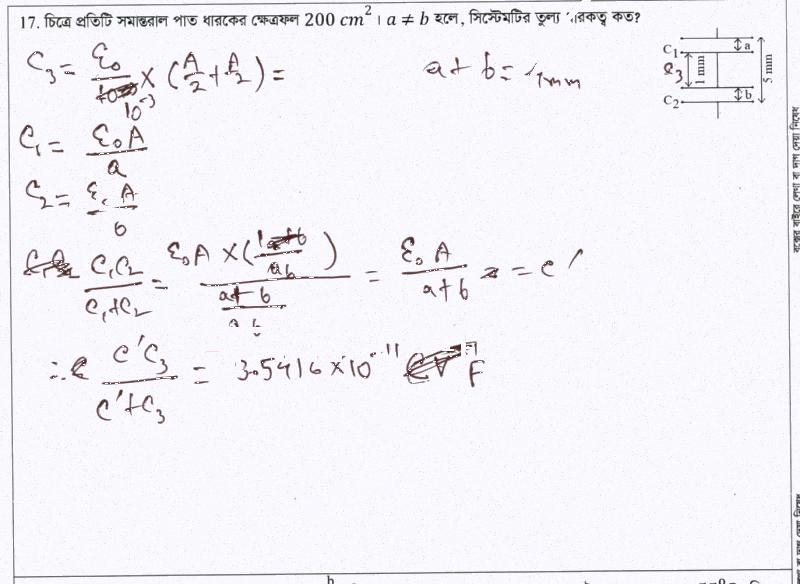 17. চিত্রে প্রতিটি সমান্তরাল পাত ধারকের ক্ষেত্রফল 200 cm² । a ≠ b হলে, সিস্টেমটির তুল্য ধারকত্ব কত?
C₁
a
1 mm
5 mm
C₂
b
C₃ = ε₀ / 10⁻³ × (A/2 + A/2) =
a + b = 4mm
C₁ = ε₀A / a
C₂ = ε₀A / b
C₁C₂ / C₁+C₂ = ε₀A × (1/ab) / (a+b / ab) = ε₀A / a+b = C′
∴ C′C₃ / C′+C₃ = 3.5416 × 10⁻¹¹ F